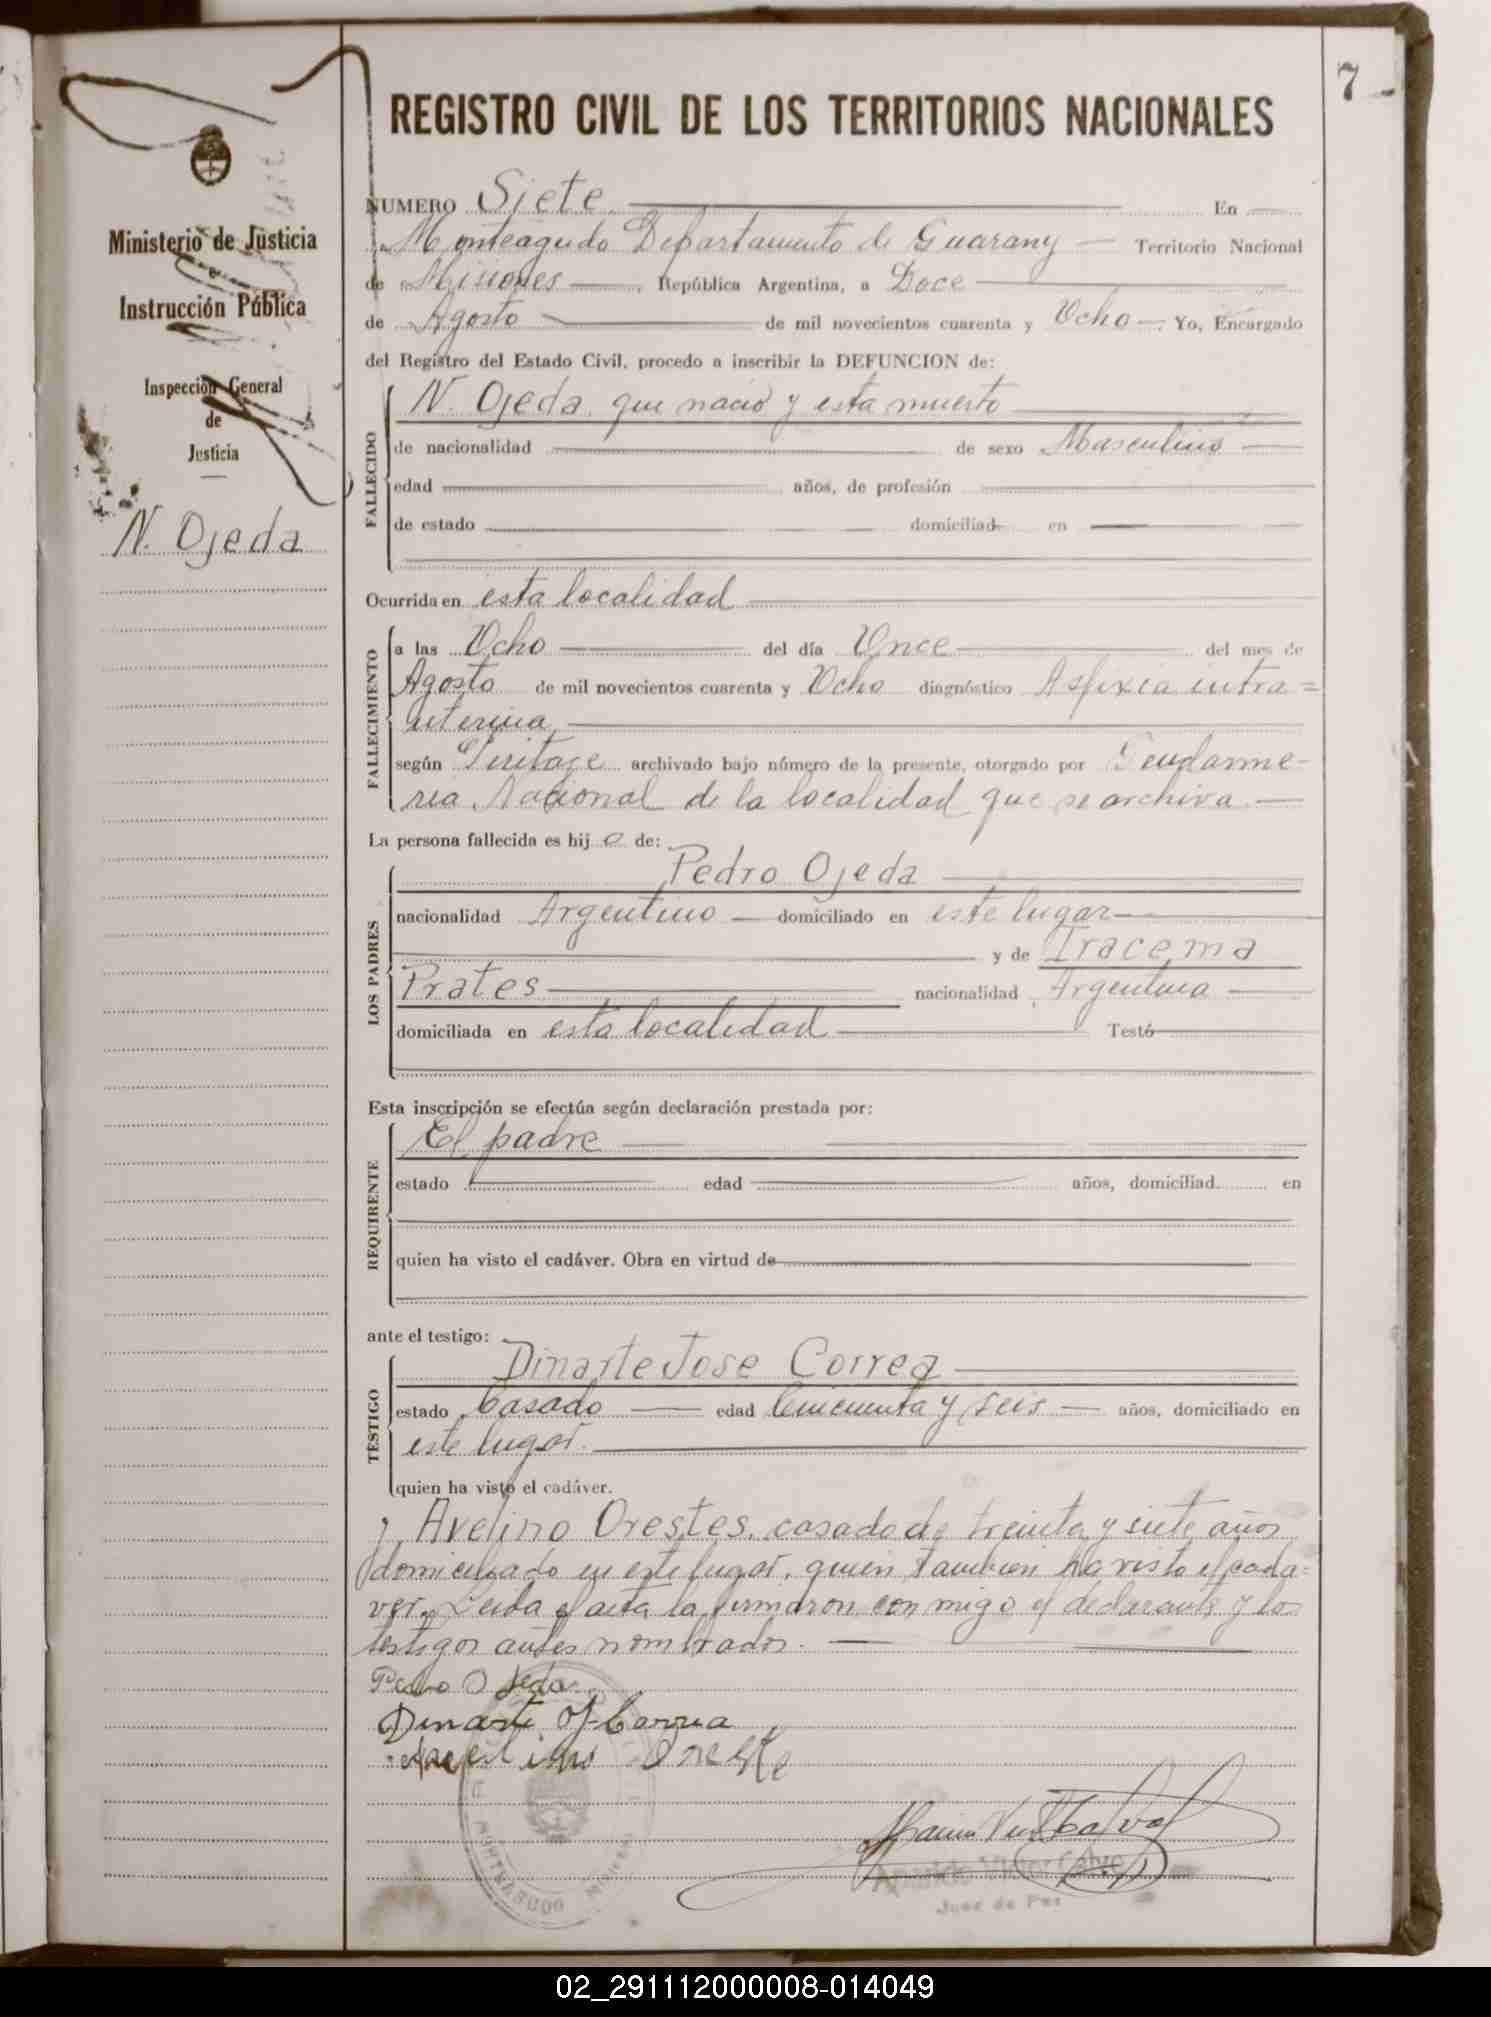 7
REGISTRO CIVIL DE LOS TERRITORIOS NACIONALES
Ministerio de Justicia
e
Instrucción Pública
Inspección General
de
Justicia
N. Ojeda
NUMERO Siete En
Monteagudo Departamento de Guarany Territorio Nacional
de Misiones República Argentina, a Doce
de Agosto de mil novecientos cuarenta y Ocho Yo, Encargado
del Registro del Estado Civil, procedo a inscribir la DEFUNCION de:
FALLECIDO
N. Ojeda, que nació y esta muerto
de nacionalidad de sexo Masculino
edad años, de profesión
de estado domiciliad en
Ocurrida en esta localidad
FALLECIMIENTO
a las Ocho del día Once del mes de
Agosto de mil novecientos cuarenta y Ocho diagnóstico Asfixia intra=
uterina
según archivado bajo número de la presente, otorgado por Gendarme-
ria Nacional de la localidad que se archiva.
La persona fallecida es hij o de:
LOS PADRES
Pedro Ojeda
nacionalidad Argentino domiciliado en este lugar
y de Iracema
Prates nacionalidad Argentina
domiciliada en esta localidad Testó
Esta inscripción se efectúa según declaración prestada por:
REQUIRENTE
El padre
estado edad años, domiciliad en
quien ha visto el cadáver. Obra en virtud de
ante el testigo:
TESTIGO
Dinarte Jose Correa
estado Casado edad Cincuenta y seis años, domiciliado en
este lugar.
quien ha visto el cadáver.
y Avelino Orestes, casado de treinta y siete años
domiciliado en este lugar, quien tambien ha visto el cada=
ver. Leida el acta la firmaron con migo el declarante y los
testigos antes nombrados.
Pedro Ojeda
Dinarte J. Correa
Avelino Oreste
MONTEAGUDO
Juez de Paz
02_291112000008-014049